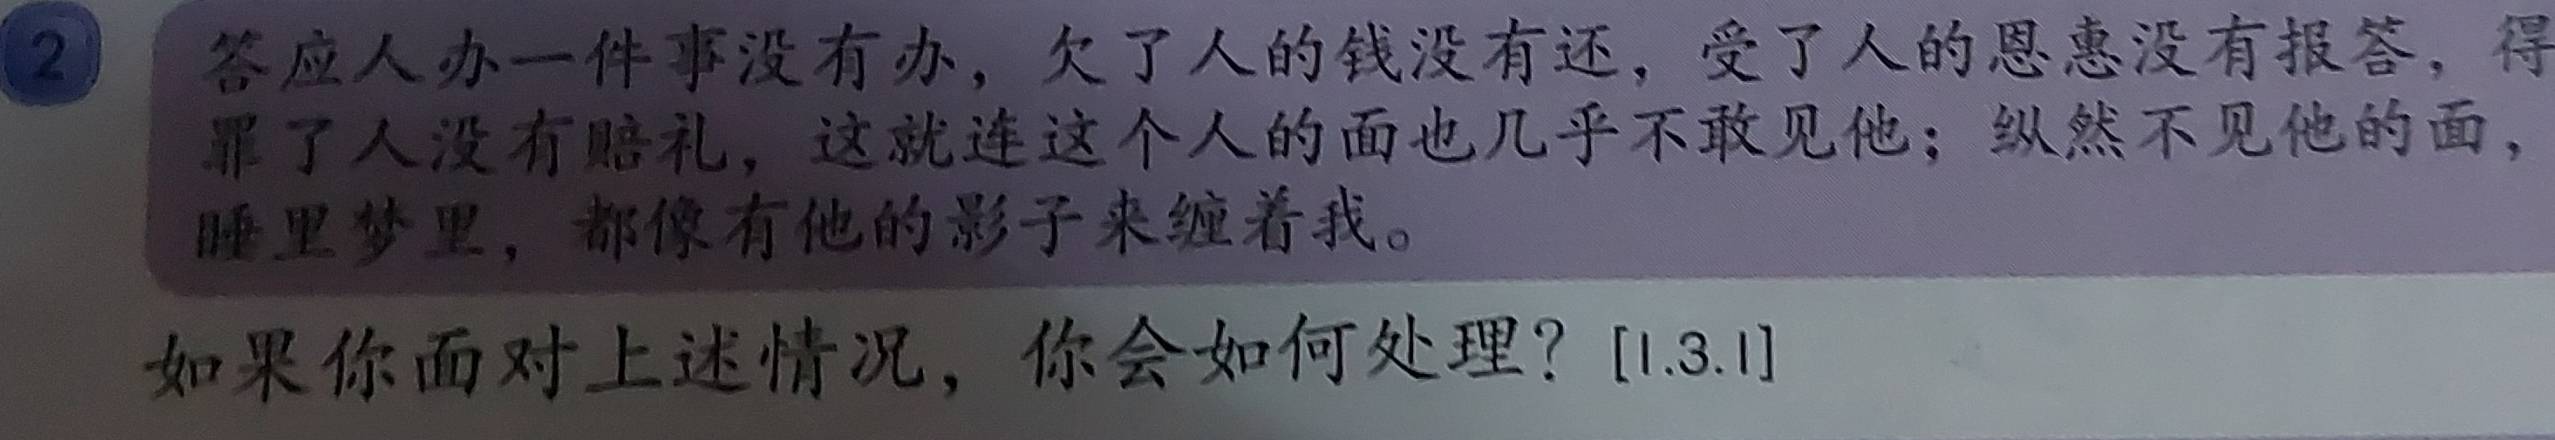 2
答应人办一件事没有办，欠了人的钱没有还，受了人的恩惠没有报答，得
罪了人没有赔礼，这就连这个人的面也几乎不敢见他；纵然不见他的面，
睡里梦里，都像有他的影子来缠着我。
如果你面对上述情况，你会如何处理？[1.3.1]